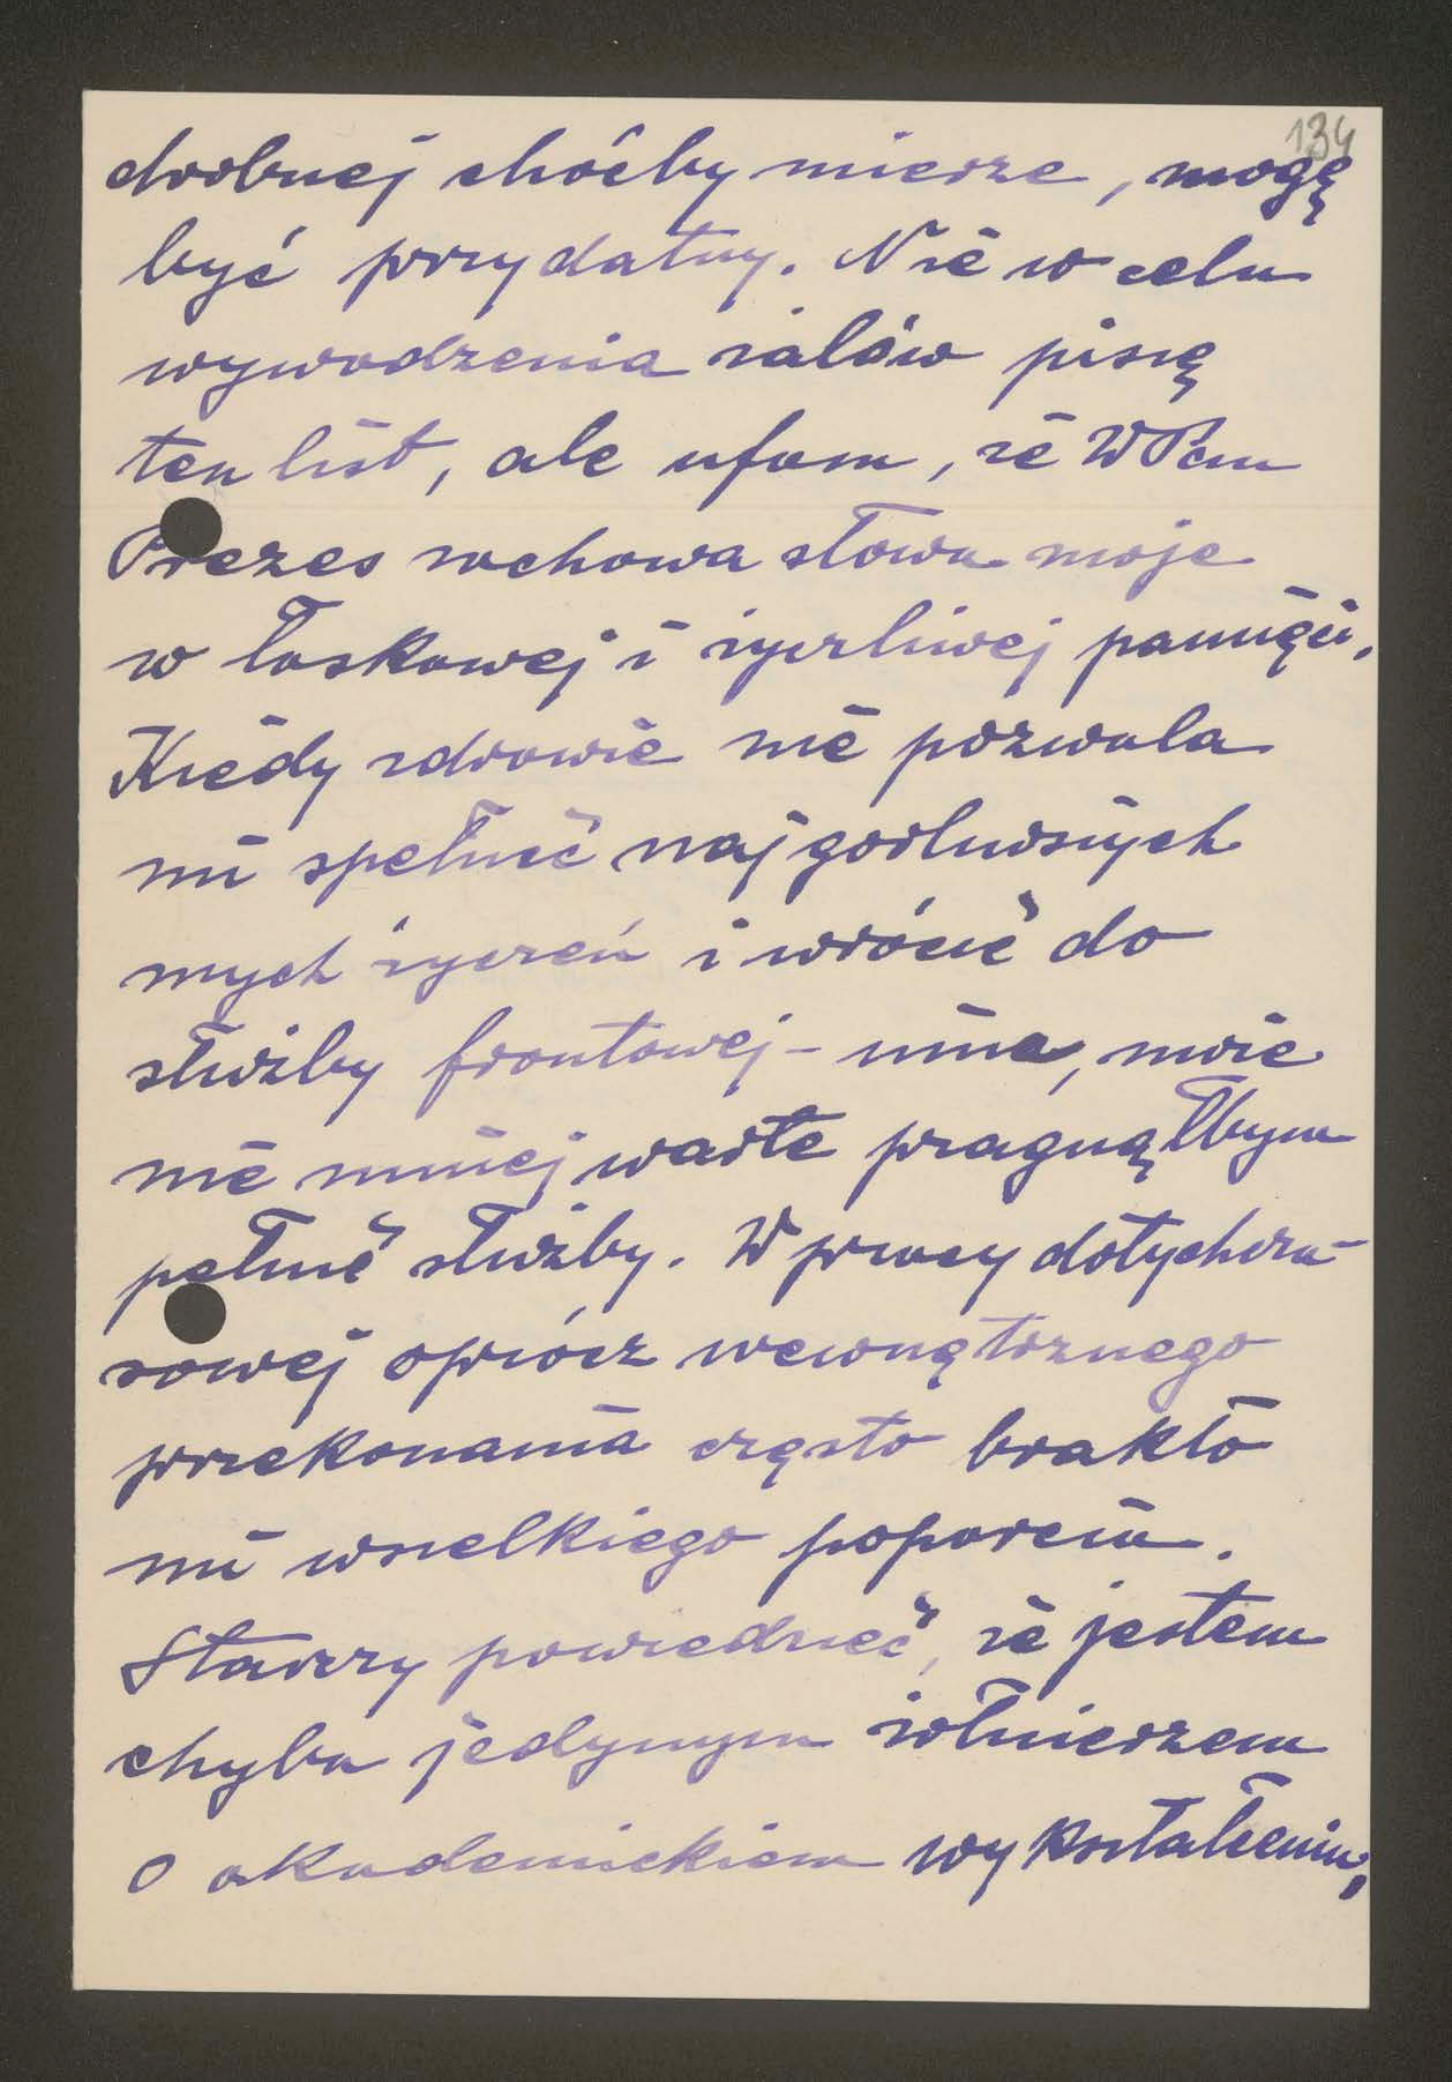 134
drobnej choćby mierze, mogę
być przydatny. Nie w celu
wywodzenia żalów piszę
ten list, ale ufam, że WPan
Prezes zachowa słowa moje
w łaskawej i życzliwej pamięci.
Kiedy zdrowie nie pozwala
mi spełnić najgorliwszych
mych życzeń i wrócić do
służby frontowej - inną, może
nie mniej wartą pragnąłbym
pełnić służby. W pracy dotychcza-
sowej oprócz wewnętrznego
przekonania często brakło
mi wszelkiego poparcia.
Starczy powiedzieć, że jestem
chyba jedynym żołnierzem
o akademickiem wykształceniu,